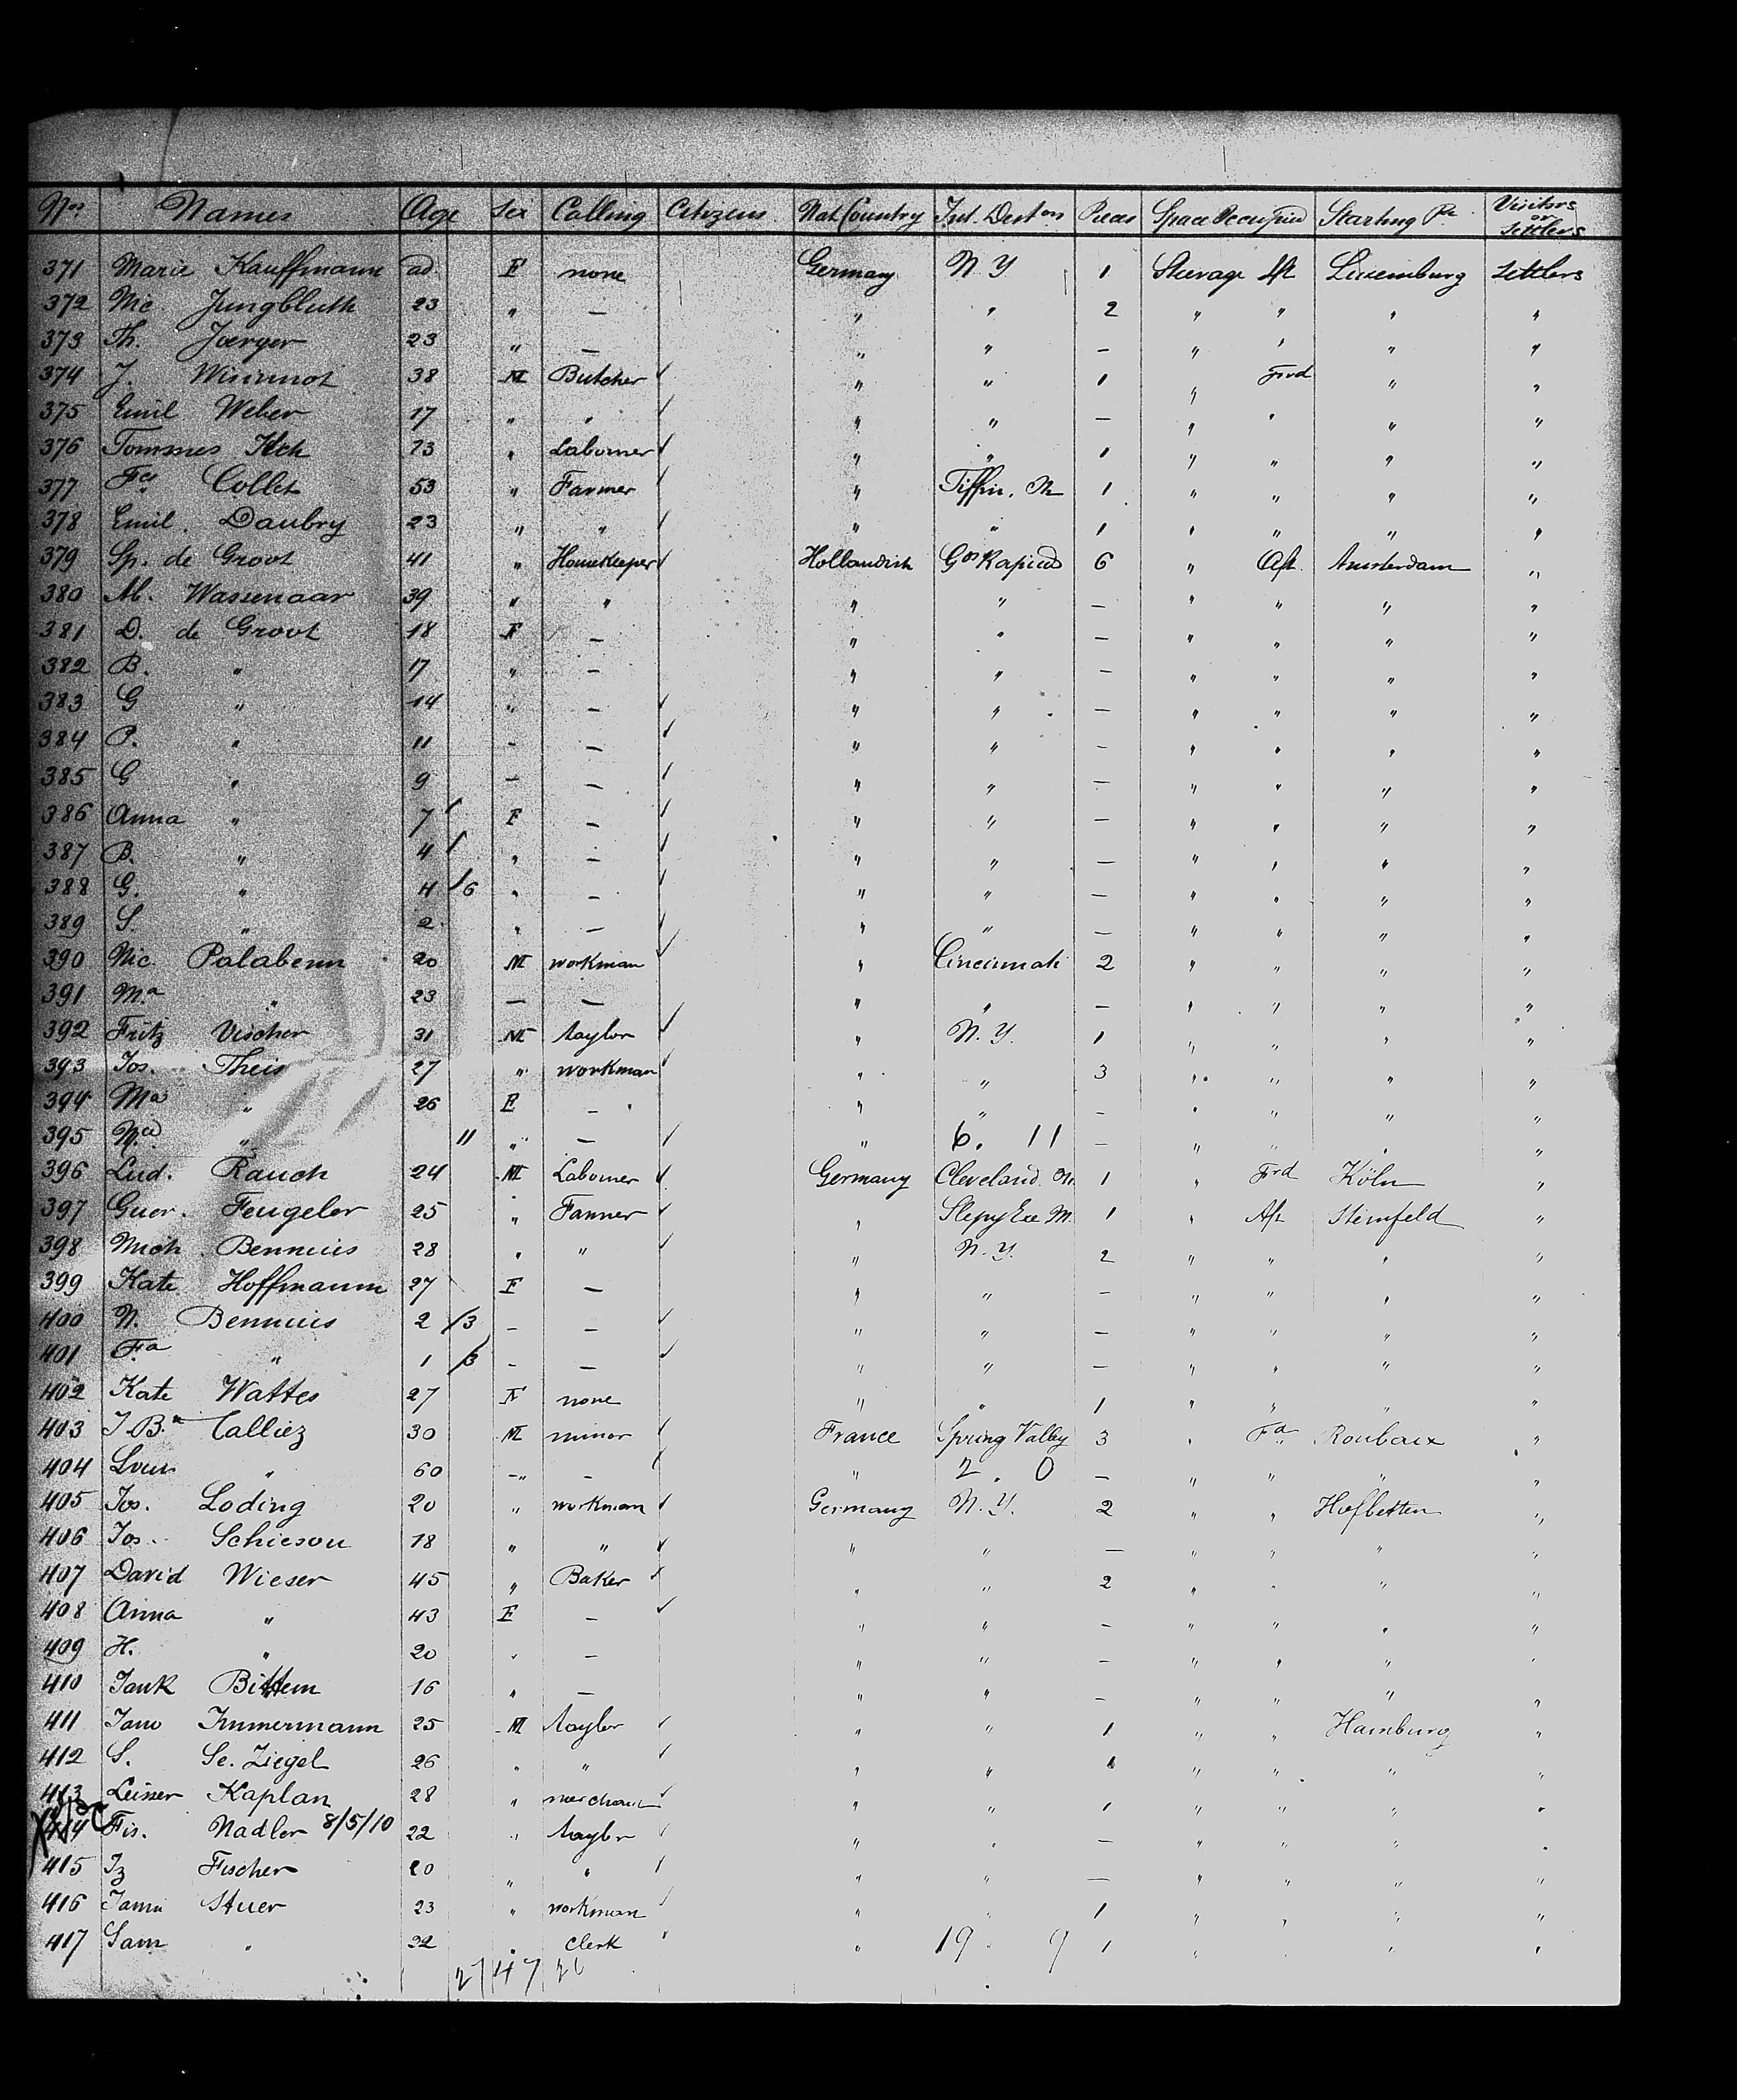 Nos Names Age Sex Calling Citizens Nat. Country Int. Deston Pieces Space Occupied Starting Pt Visitors or Settlers
371 Marie Kauffmann ad. F none Germany N.Y 1 Steerage Aft Luxemburg Settlers
372 Nic. Jungbluth 23 " — " " 2 " " " "
373 Th. Joerger 23 " — " " — " " " "
374 J. 38 M Butcher ✓ " " 1 " Frd " "
375 Emil Weber 17 " " ✓ " " — " " " "
376 Tommes 23 " Labourer ✓ " " 1 " " " "
377 Collet 53 " Farmer ✓ " Tiffin. 1 " " " "
378 Emil. Daubry 23 " " ✓ " " 1 " " " "
379 Sp. de Groot 41 " Housekeeper ✓ Hollandish Gd Rapids 6 " Aft. Amsterdam "
380 M. Wassenaar 39 " " " " — " " " "
381 D. de Groot 18 F — " " — " " " "
382 B. " 17 " — " " — " " " "
383 G " 14 " — ✓ " " — " " " "
384 P. " 11 - — ✓ " " — " " " "
385 G " 9 — — ✓ " " — " " " "
386 Anna " 7 ✓ F — ✓ " " — " " " "
387 B. " 4 ✓ " — ✓ " " — " " " "
388 G. " 4 /6 " — ✓ " " — " " " "
389 S. " 2 " — ✓ " " — " " " "
390 Nic. Palabenn 20 M workman ✓ " Cincinnati 2 " " " "
391 Ma " 23 — — " " — " " " "
392 Fritz Vischer 31 M taylor ✓ " N.Y. 1 " " " "
393 Jos. Theis 27 " workman ✓ " " 3 " " " "
394 Ma " 26 F — " " — " " " "
395 " 11 " — ✓ " 6. 11 — " " " "
396 Lud. Rauch 24 M Labourer ✓ Germany Cleveland. 1 " Frd Köln "
397 Feugeler 25 " Farmer ✓ " Slepy Eye M. 1 " Aft Steinfeld "
398 Mich. Bennuis 28 " " ✓ " N.Y. 2 " " " "
399 Kate Hoffmann 27 F — " " — " " " "
400 N. Bennuis 2 /3 — — ✓ " " — " " " "
401 Fa " 1 /3 - — ✓ " " — " " " "
402 Kate Wattes 27 F none " " 1 " " " "
403 J.B. Calliez 30 M minor ✓ France Spring Valley 3 " Roubaix "
404 Louis " 60 " — ✓ " 2. 0 — " " " "
405 Jos. Loding 20 " workman ✓ Germany N.Y. 2 " " Hofbetten "
406 Jos. Schieson 18 " " ✓ " " — " " " "
407 David Wieser 45 " Baker ✓ " " 2 " " " "
408 Anna " 43 F — ✓ " " — " " " "
409 H. " 20 " — " " — " " " "
410 Jank Bittem 16 " — " " — " " " "
411 Immermann 25 M taylor ✓ " " 1 " " Hamburg "
412 S. Se. Ziegel 26 " " ✓ " " 1 " " " "
413 Leiser Kaplan 28 " merchant ✓ " " 1 " " " "
414 Fis. Nadler 8/5/10 22 " taylor ✓ " " — " " " "
415 Iz Fischer 20 " " ✓ " " — " " " "
416 Stuer 23 " workman ✓ " " 1 " " " "
417 Sam " 32 " clerk ✓ " 19. 9 1 " " " "